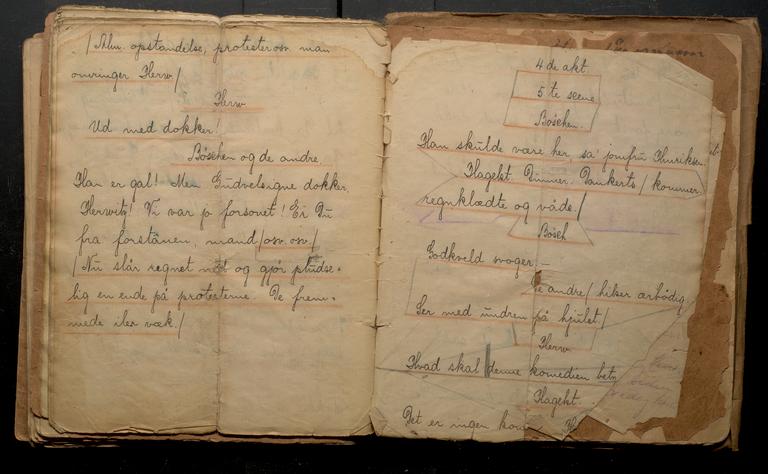 /Alm. opstandelse, protester osv. man
omringer Herw/
Herw
Ud med dokker!
Böschen og de andre.
Han er gal! Men Gudvelsigne dokker,
Herwitz! Vi var jo forsonet! Er Du
fra forstanen, mand/osv. osv./
/Nu slår regnet ned og gjør pludse=
lig en ende på protesterne. De frem=
mede iler væk./
4de akt.
5te scene
Böschen.
Han skulde være her, sa' jomfru Henriksen
Hagekt. Dimmer. Dankerts/kommer
regnklædte og våde./
Bösch
Godkveld svoger!-
De andre/hilser ærbødig.
Ser med undren på hjulet./
Herw
Hvad skal denne komedien bety
Hagekt.
Det er ingen kom